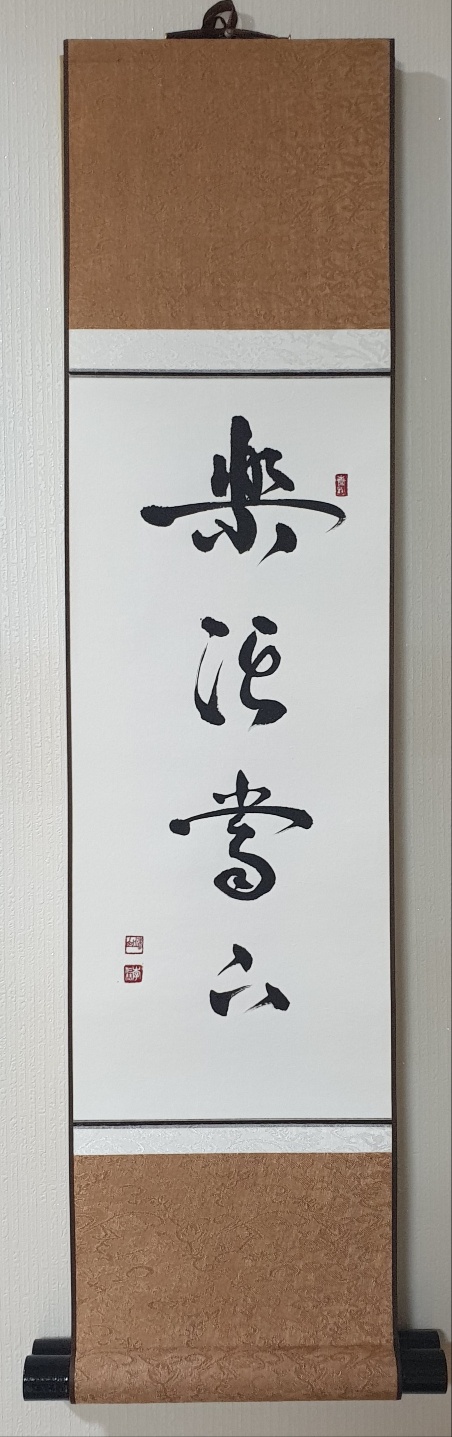 樂活當下